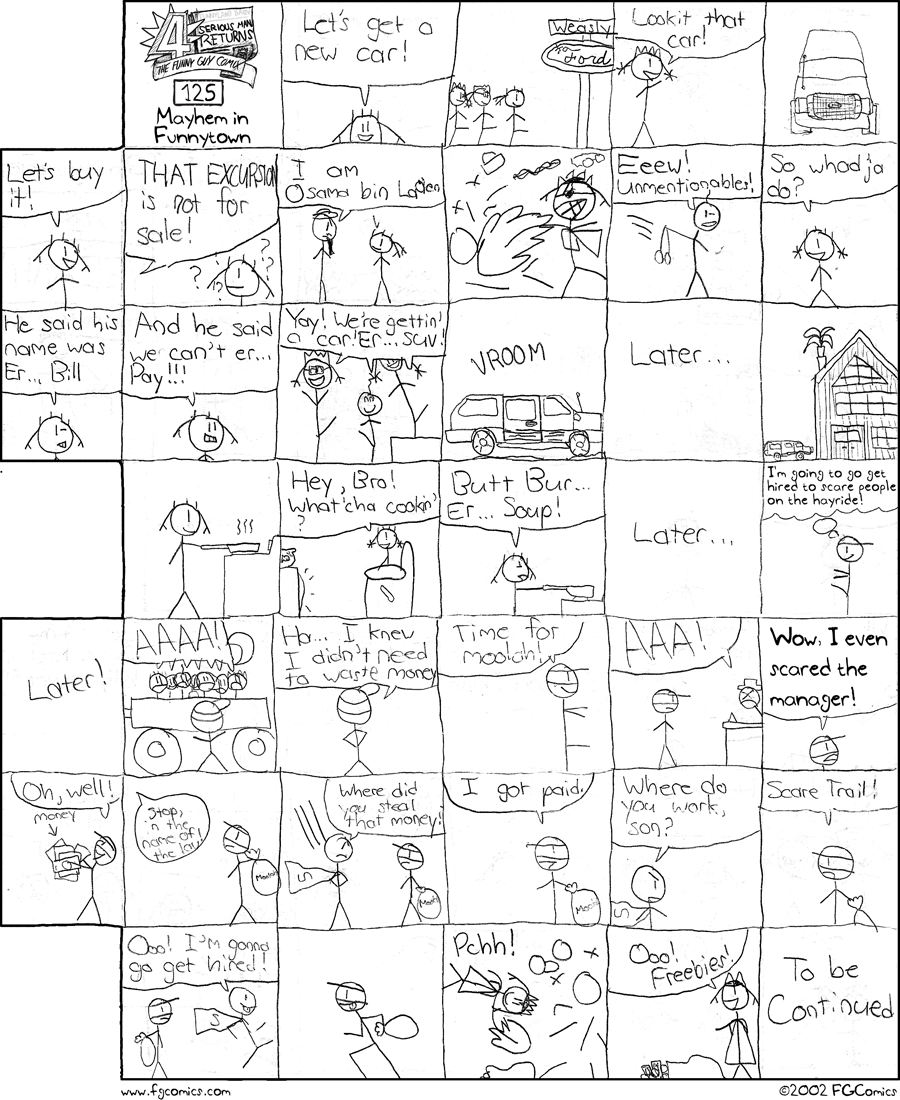 4
SERIOUS MAN
RETURNS
THE FUNNY GUY COMIX
125
Mayhem in
Funnytown
Let's get a
new car!
Weasly
Ford
Lookit that
car!
Let's buy
it!
THAT EXCURSION
is not for
sale!
? ? ? !?
I am
Osama bin Laden
Eeew!
Unmentionables!
So whad'ja
do?
He said his
name was
Er... Bill
And he said
we can't er...
Pay!!!
Yay! We're gettin'
a car! Er... SUV!
VROOM
Later...
Hey, Bro!
What'cha cookin'
?
Butt Bur...
Er... Soup!
Later...
I'm going to go get
hired to scare people
on the hayride!
Later!
AAAA!
Ha... I knew
I didn't need
to waste money
Time for
moolah!
AAA!
Wow, I even
scared the
manager!
Oh, well!
money
Stop,
in the
name of
the law!
Moolah
Where did
you steal
that money!
S
Moolah
I got paid.
Moolah
Where do
you work,
son?
S
Scare Trail!
Ooo! I'm gonna
go get hired!
S
Pchh!
Ooo!
Freebies!
To be
Continued
www.fgcomics.com
©2002 FGComics